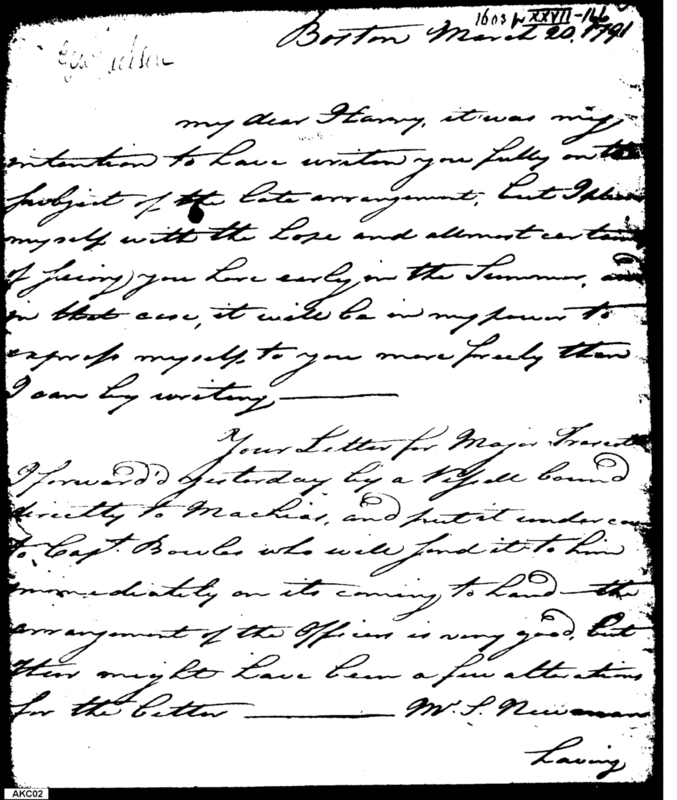 XXVII-146
Boston March 20, 1791
my dear Harry, it was my
intention to have writen you fully on the
subject of the late arrangement, but I please
myself with the hope and allmost certain
of seeing you here early in the Summer, and
in that case, it will be in my power to
express myself to you more freely than
I can by writing
Your Letter for Major Trescott
I forward'd yesterday by a Vessell bound
directly to Machias, and put it under cov
to Capt. Bowles who will send it to him
immediately on its coming to hand the
arrangement of the Officers is very good, but
their might have been a few alterations
for the better Mr. S. Newman
having
AKC02